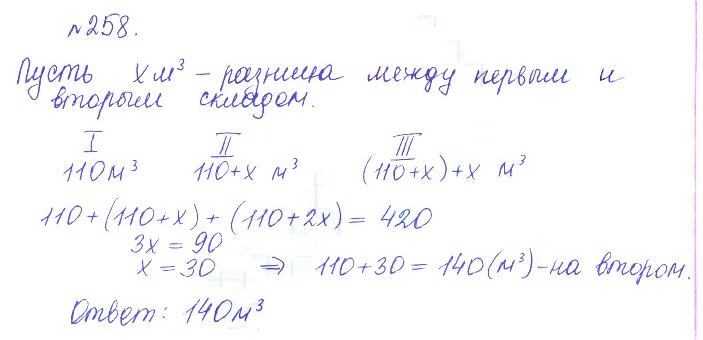 №258.
Пусть х м³ – разница между первым и
вторым складом.
I II III
110 м³ 110+х м³ (110+х)+х м³
110+(110+х)+(110+2х)=420
3х=90
х=30 ⇒ 110+30=140(м³)–на втором.
Ответ: 140м³